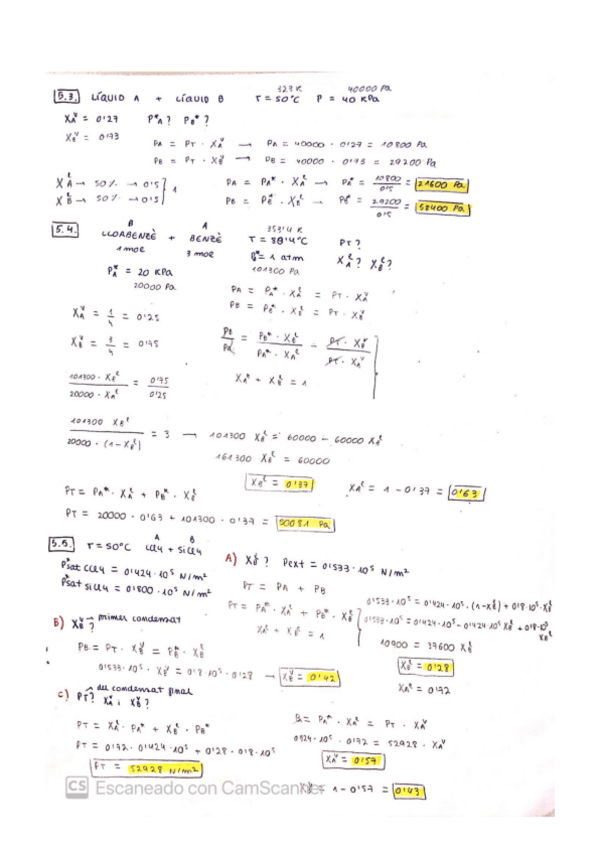 323 K 40000 Pa
5.3. LÍQUID A + LÍQUID B T = 50°C P = 40 KPa
X_A^v = 0'27 P_A^*? P_B^*?
X_B^v = 0'73
P_A = P_T · X_A^v → P_A = 40000 · 0'27 = 10800 Pa
P_B = P_T · X_B^v → P_B = 40000 · 0'73 = 29200 Pa
X_A^l → 50% → 0'5 } 1 P_A = P_A^* · X_A^l → P_A^* = 10800/0'5 = 21600 Pa
X_B^l → 50% → 0'5 P_B = P_B^* · X_B^l → P_B^* = 29200/0'5 = 58400 Pa
B A 353'4 K
5.4. CLOROBENZÈ + BENZÈ T = 80'4°C P_T?
1 mol 3 mol P_B^* = 1 atm X_A^l? X_B^l?
P_A^* = 20 KPa 101300 Pa
20000 Pa
P_A = P_A^* · X_A^l = P_T · X_A^v
P_B = P_B^* · X_B^l = P_T · X_B^v
X_A^v = 1/4 = 0'25
X_B^v = 3/4 = 0'75 P_B/P_A = P_B^* · X_B^l / P_A^* · X_A^l = P_T · X_B^v / P_T · X_A^v
101300 · X_B^l / 20000 · X_A^l = 0'75/0'25 X_A^l + X_B^l = 1
101300 X_B^l / 20000 · (1 - X_B^l) = 3 → 101300 X_B^l = 60000 - 60000 X_B^l
161300 X_B^l = 60000
X_B^l = 0'37 X_A^l = 1 - 0'37 = 0'63
P_T = P_A^* · X_A^l + P_B^* · X_B^l
P_T = 20000 · 0'63 + 101300 · 0'37 = 50081 Pa
A B
5.5. T = 50°C CCl4 + SiCl4 A) X_B^l? Pext = 0'533·10^5 N/m²
P°sat CCl4 = 0'424·10^5 N/m²
P°sat SiCl4 = 0'800·10^5 N/m²
P_T = P_A + P_B
P_T = P_A^* · X_A^l + P_B^* · X_B^l 0'533·10^5 = 0'424·10^5 · (1-X_B^l) + 0'8·10^5 · X_B^l
X_A^l + X_B^l = 1 0'533·10^5 = 0'424·10^5 - 0'424·10^5 X_B^l + 0'8·10^5 X_B^l
10900 = 37600 X_B^l
X_B^l = 0'28
X_A^l = 0'72
B) X_B^v? → primer condensat
P_B = P_T · X_B^v = P_B^* · X_B^l
0'533·10^5 · X_B^v = 0'8·10^5 · 0'28 → X_B^v = 0'42
C) P_T? X_A^v i X_B^v? del condensat final
P_T = X_A^l · P_A^* + X_B^l · P_B^*
P_T = 0'72 · 0'424·10^5 + 0'28 · 0'8·10^5
P_T = 52928 N/m²
P_A = P_A^* · X_A^l = P_T · X_A^v
0'424·10^5 · 0'72 = 52928 · X_A^v
X_A^v = 0'57
X_B^v = 1 - 0'57 = 0'43
CS Escaneado con CamScanner